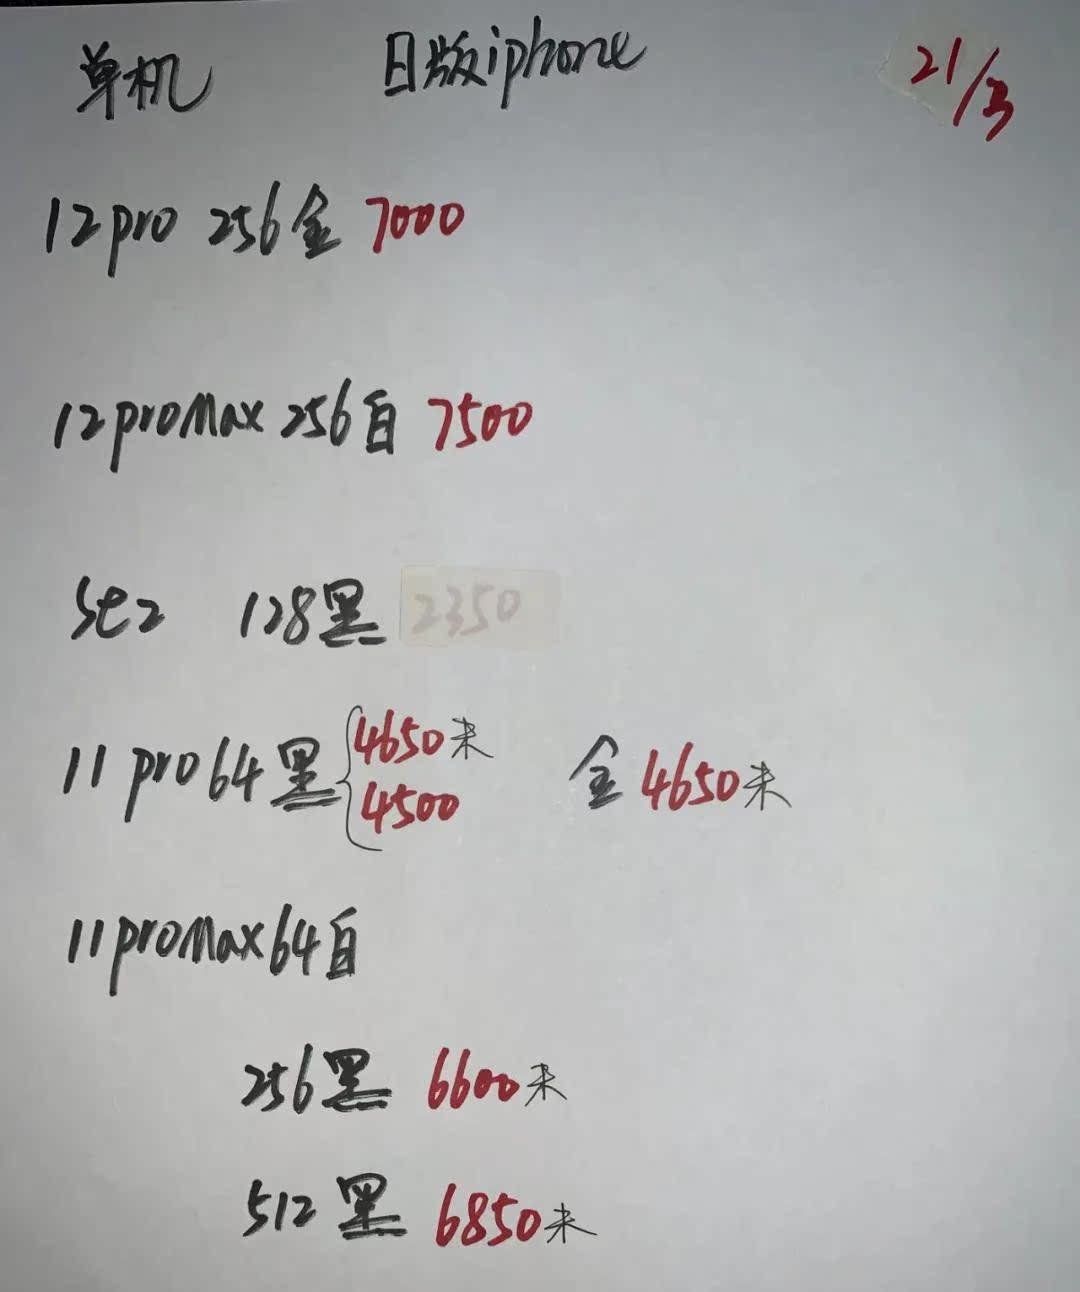 单机 日版iphone 21/3
12pro 256金 7000
12proMax 256白 7500
SE2 128黑 2350
11 pro 64 黑 4650未 金 4650未
4500
11proMax 64白
256黑 6600未
512黑 6850未